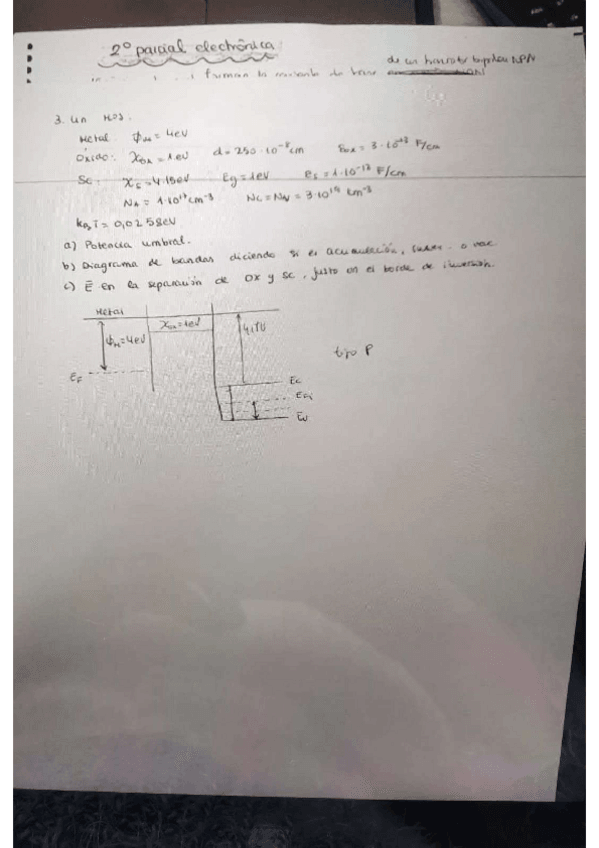 2º parcial electrónica
de un transistor bipolar NPN
forman la corriente de base
3. Un MOS.
Metal: ϕM = 4eV
Óxido: Xox = 1eV d = 250·10⁻⁸cm Eox = 3·10⁻¹³ F/cm
SC: Xs = 4.15eV Eg = 1eV es = 1·10⁻¹² F/cm
NA = 1·10¹⁷cm⁻³ Nc = Nv = 3·10¹⁹ cm⁻³
kBT = 0,0258eV
a) Potencia umbral.
b) Diagrama de bandas diciendo si es acumulación, o vac
c) E en la separación de ox y sc, justo en el borde de inversión.
Metal
Xox = 1eV
ϕM = 4eV
tipo P
EF
Ec
EFi
Ev